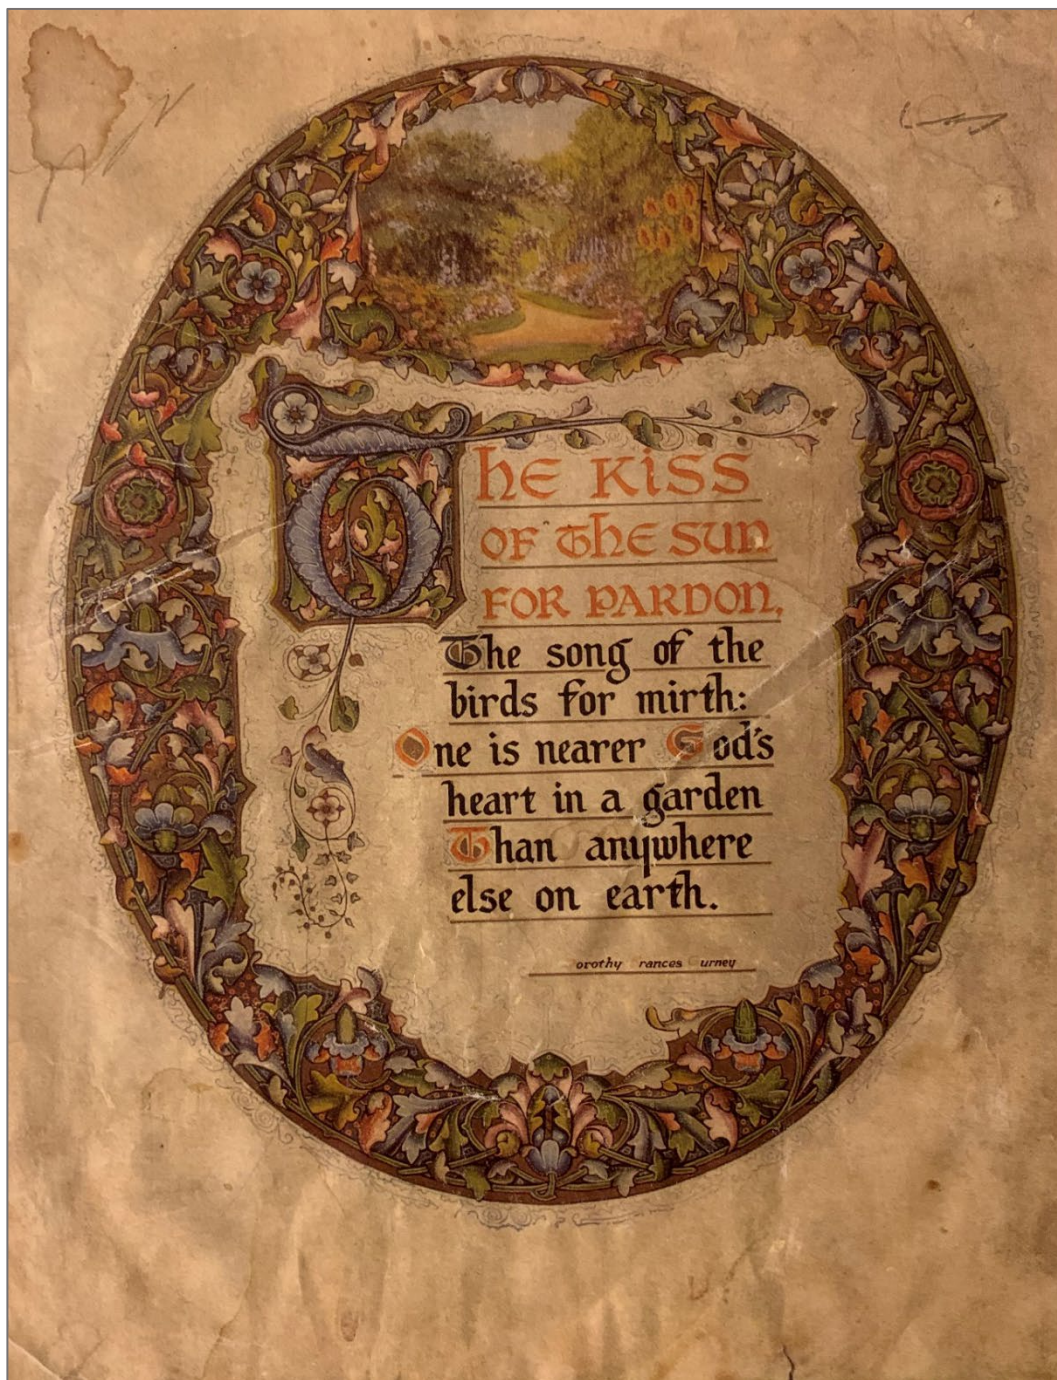 The Kiss
of the Sun
for pardon,
The song of the
birds for mirth:
One is nearer God's
heart in a garden
Than anywhere
else on earth.
orothy rances urney